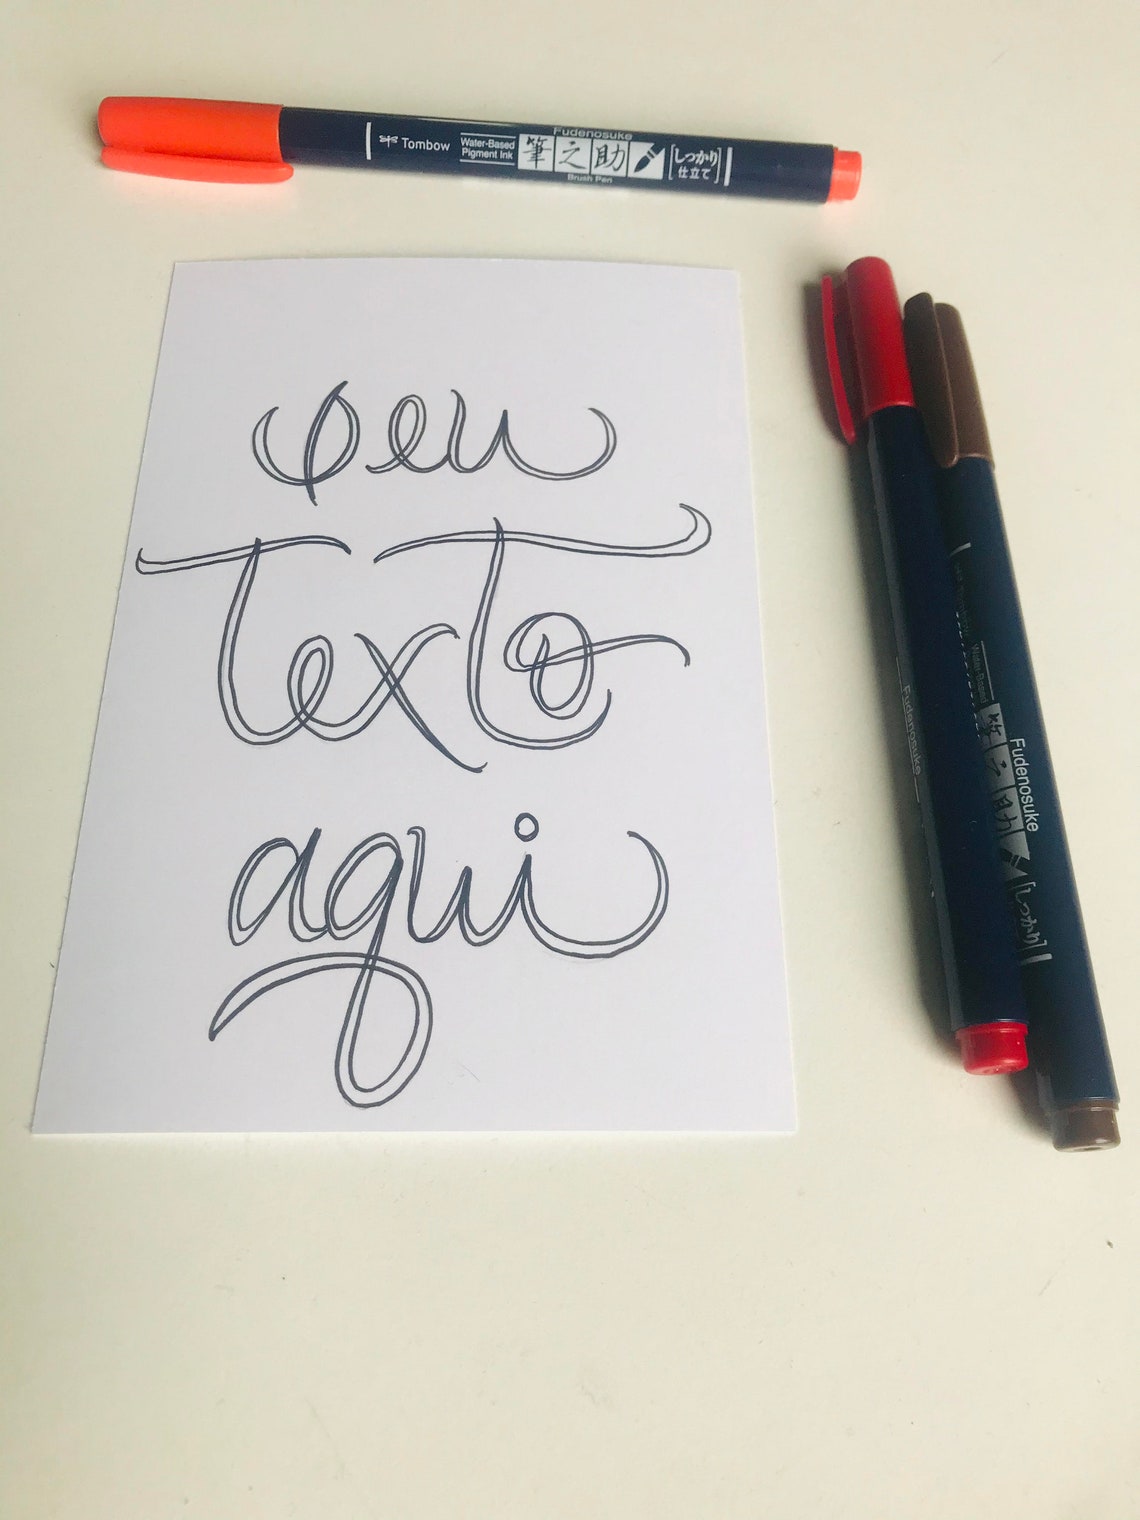 Tombow
Water-Based
Pigment Ink
Fudenosuke
筆之助
Brush Pen
しっかり
仕立て
seu
Texto
aqui
Fudenosuke
Water-Based
筆之助
Fudenosuke
しっかり